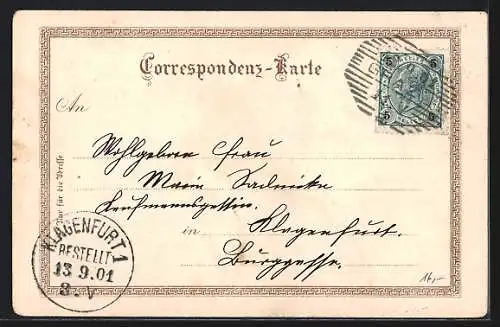 Correspondenz-Karte
An
Wohlgeboren Frau
Marie Sadnikar
Kaufmannsgattin
in Klagenfurt.
Burggasse.
Nur für die Adresse
KLAGENFURT 1
BESTELLT
13.9.01
8.-V
5 5
5 5